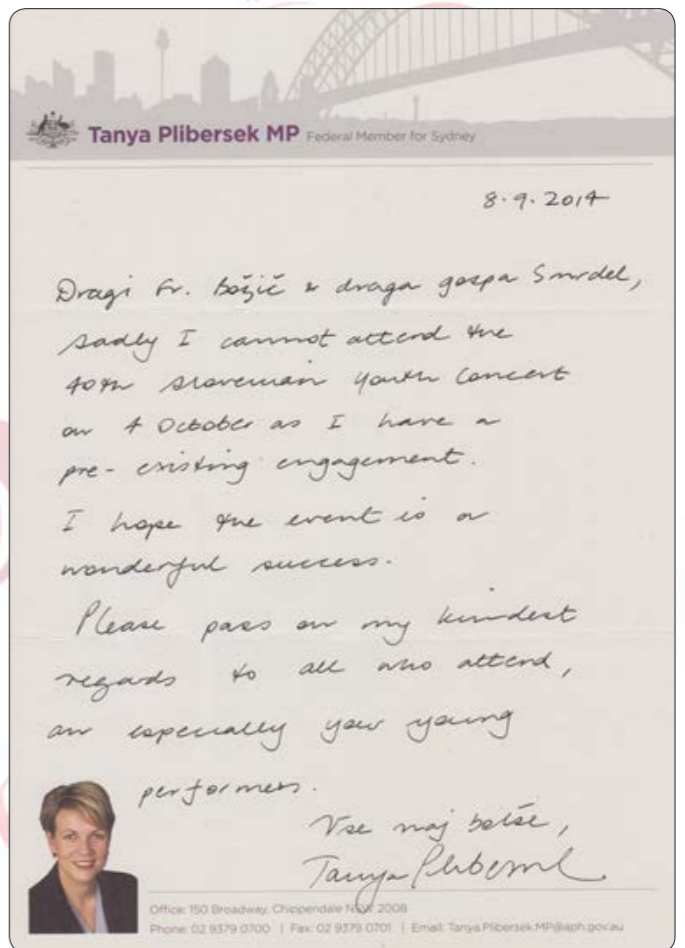 Tanya Plibersek MP Federal Member for Sydney
8.9.2014
Dragi Fr. Božič & draga gospa Smrdel,
sadly I cannot attend the
40th Slovenian Youth Concert
on 4 October as I have a
pre-existing engagement.
I hope the event is a
wonderful success.
Please pass on my kindest
regards to all who attend,
an especially your young
performers.
Vse naj bolše,
Tanya Plibersek
Office: 150 Broadway, Chippendale NSW 2008
Phone: 02 9379 0700 | Fax: 02 9379 0701 | Email: Tanya.Plibersek.MP@aph.gov.au